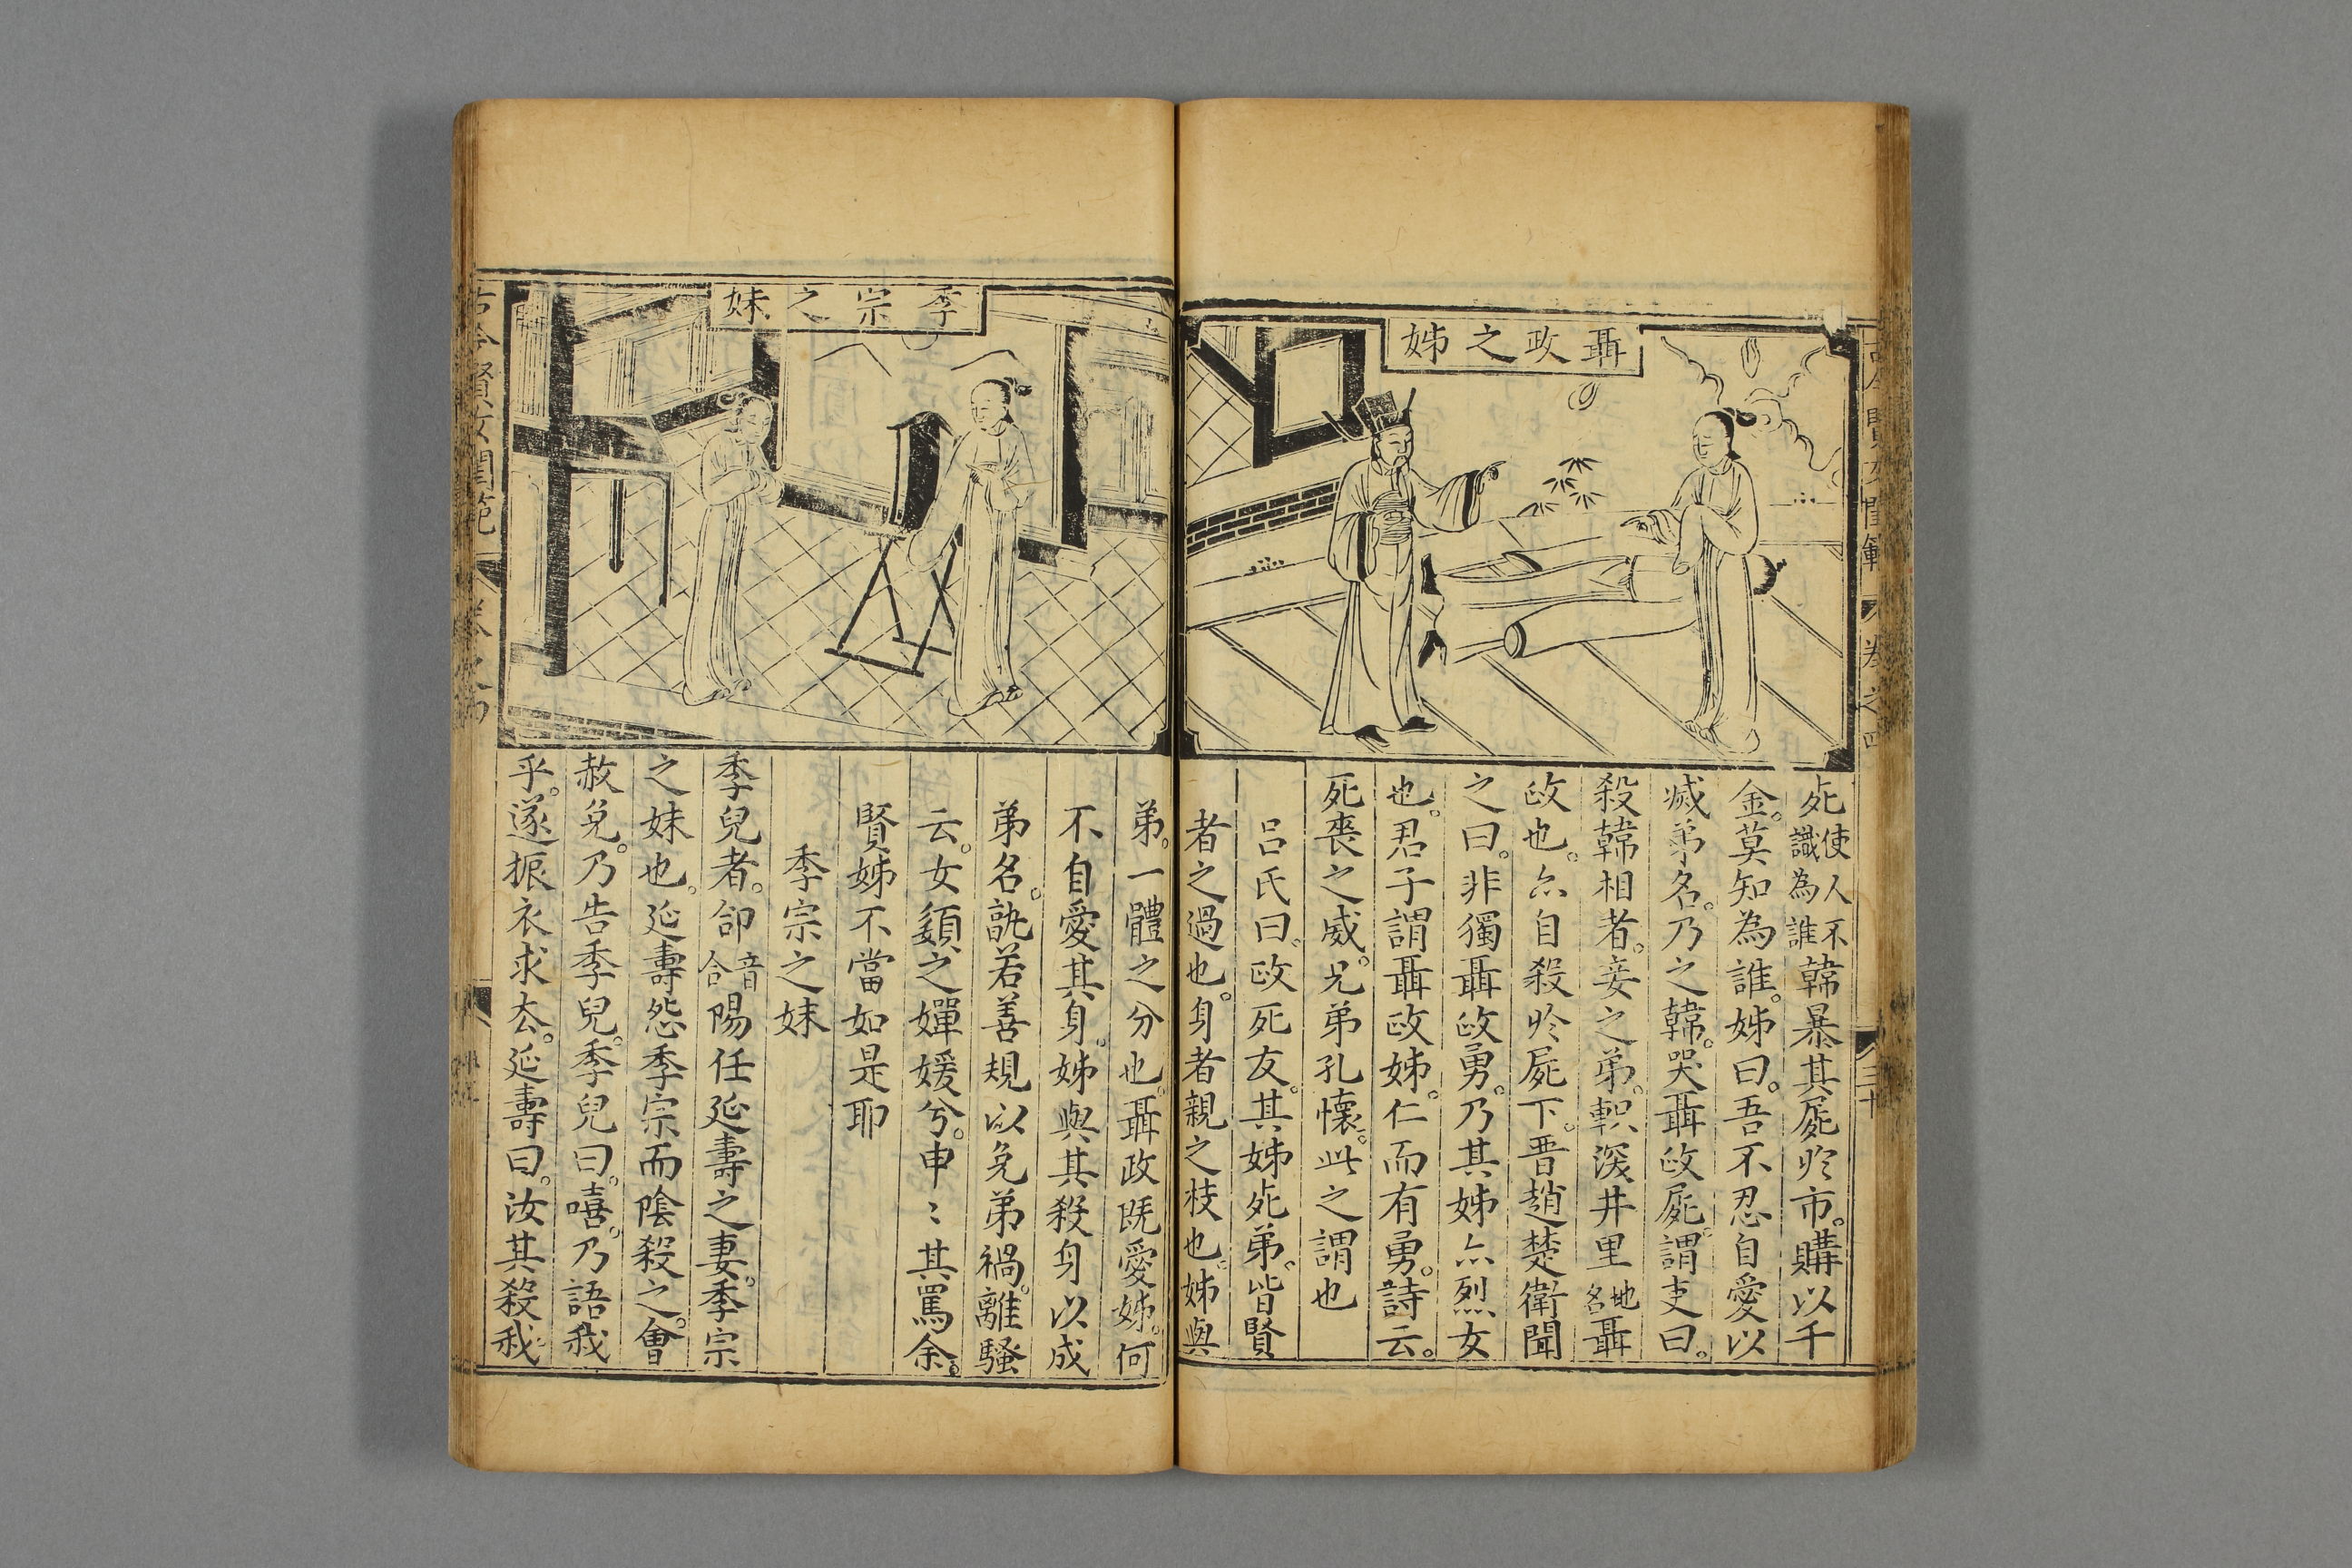 古今賢女閨範
卷之四
三十
聶政之姊
死使人不識為誰韓暴其屍於市。購以千
金。莫知為誰。姊曰。吾不忍自愛以
滅弟名。乃之韓。哭聶政屍。謂吏曰。
殺韓相者。妾之弟。軹深井里地名聶
政也。亦自殺於屍下。晋趙楚衛聞
之曰。非獨聶政勇。乃其姊亦烈女
也。君子謂聶政姊。仁而有勇。詩云。
死喪之威。兄弟孔懷。此之謂也
呂氏曰。政死友。其姊死弟。皆賢
者之過也。身者親之枝也。姊與
季宗之妹
弟。一體之分也。聶政既愛姊。何
不自愛其身。姊與其殺身以成
弟名。孰若善規以免弟禍。離騷
云。女嬃之嬋媛兮。申〻其罵余。
賢姊不當如是耶
季宗之妹
季兒者。郃音合陽任延壽之妻。季宗
之妹也。延壽怨季宗而陰殺之。會
赦免。乃告季兒。季兒曰。嘻。乃語我
乎。遂振衣求去。延壽曰。汝其殺我
古今賢女閨範